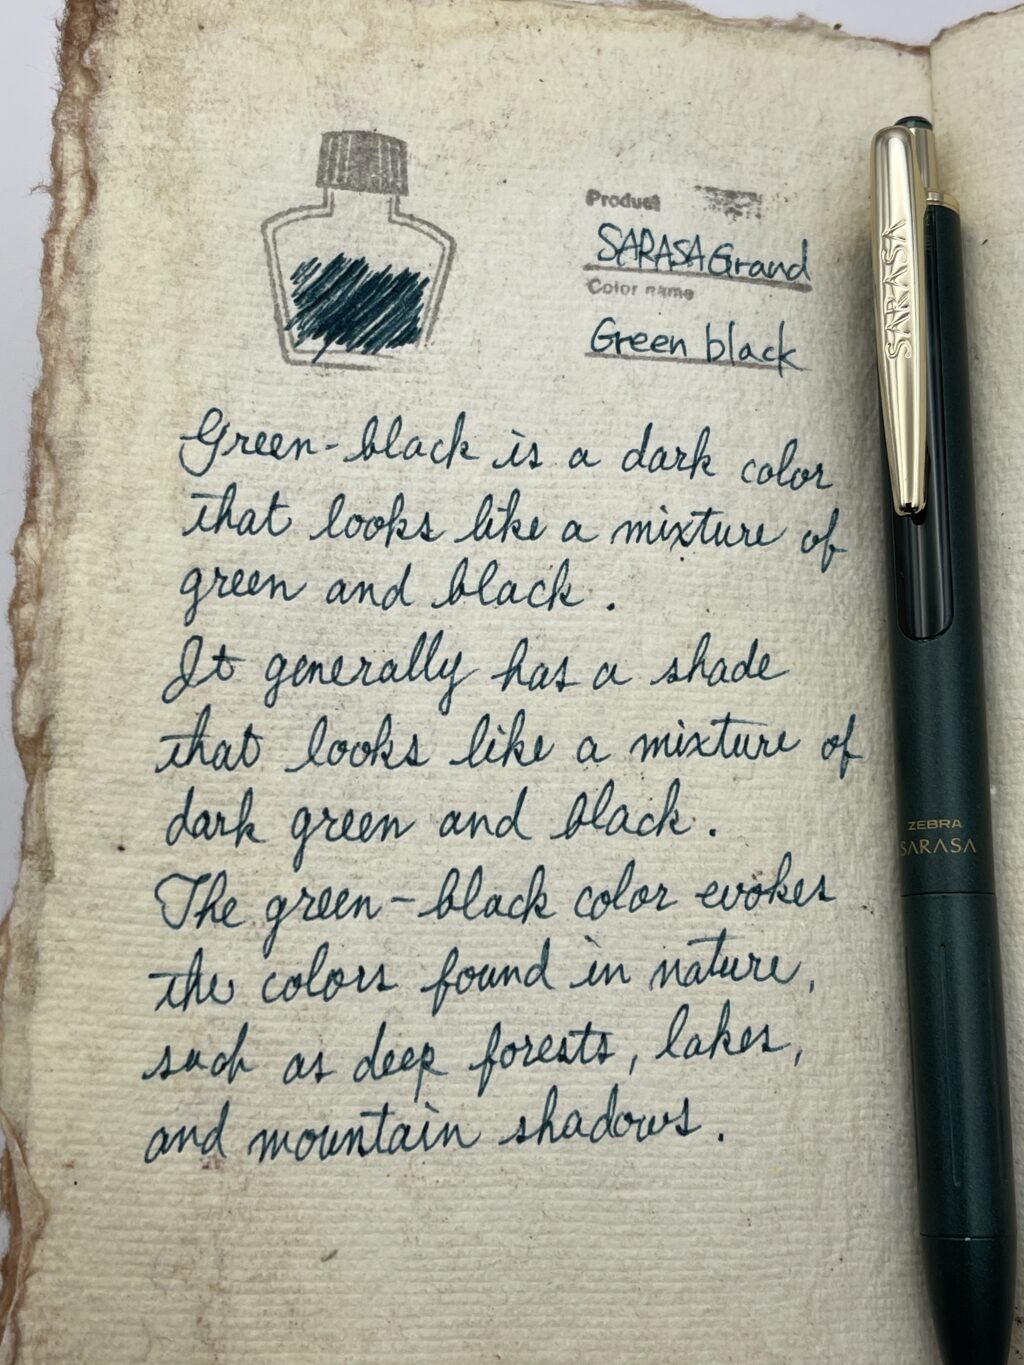 Product
SARASA Grand
Color name
Green black
Green-black is a dark color
that looks like a mixture of
green and black.
It generally has a shade
that looks like a mixture of
dark green and black.
The green-black color evokes
the colors found in nature,
such as deep forests, lakes,
and mountain shadows.
SARASA
ZEBRA
SARASA